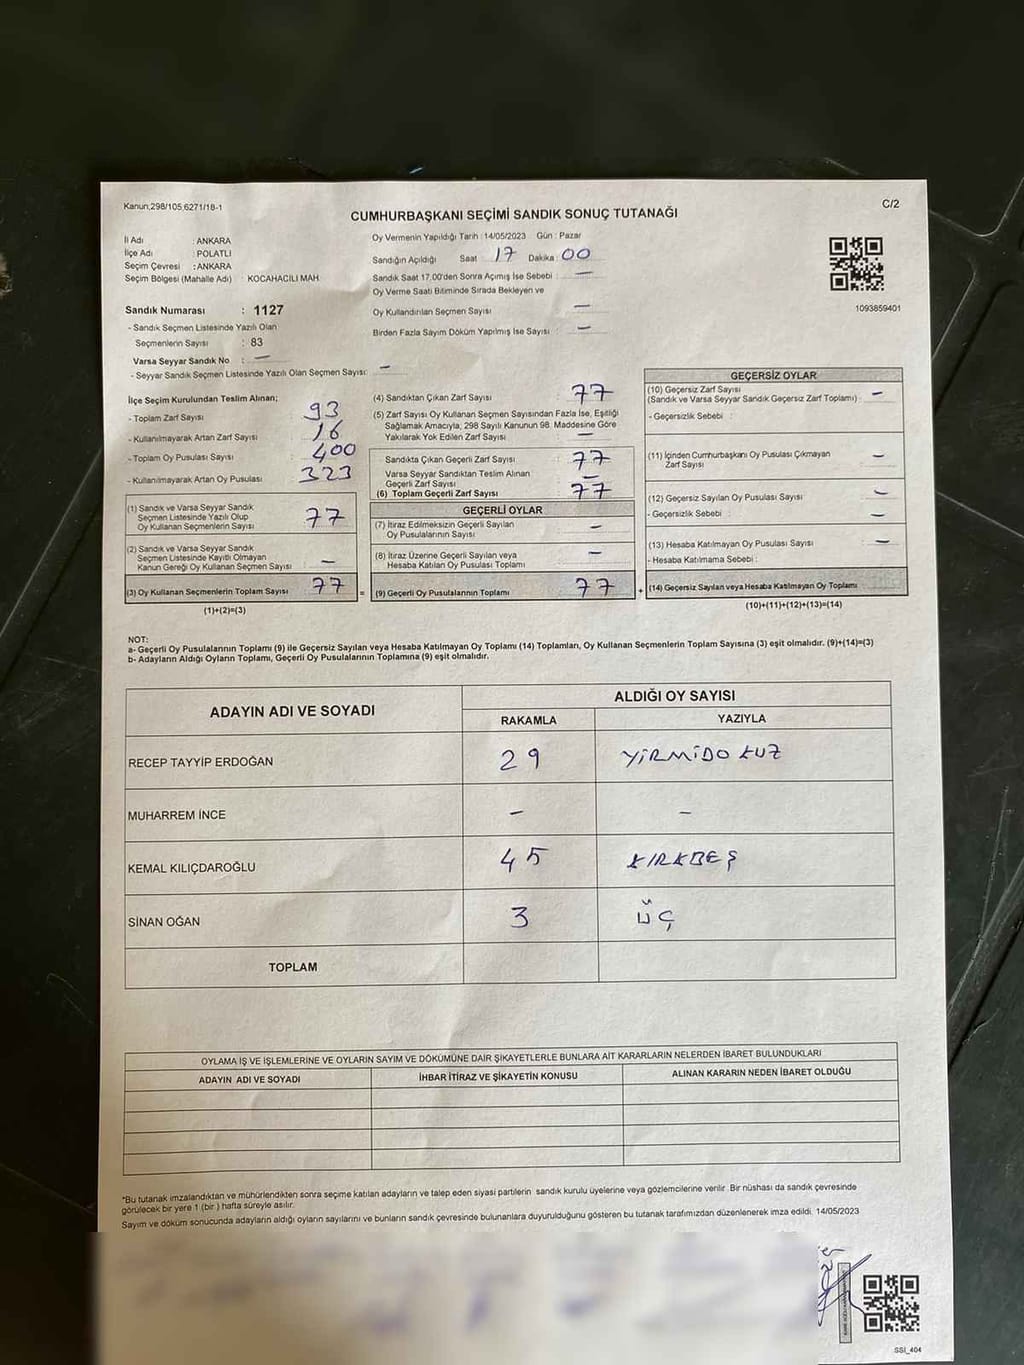 Kanun,298/105,6271/18-1
C/2
CUMHURBAŞKANI SEÇİMİ SANDIK SONUÇ TUTANAĞI
İl Adı : ANKARA
İlçe Adı : POLATLI
Seçim Çevresi : ANKARA
Seçim Bölgesi (Mahalle Adı) : KOCAHACILI MAH.
Oy Vermenin Yapıldığı Tarih : 14/05/2023 Gün : Pazar
Sandığın Açıldığı Saat 17 Dakika : 00
Sandık Saat 17.00'den Sonra Açımış İse Sebebi : —
Oy Verme Saati Bitiminde Sırada Bekleyen ve
Oy Kullandırılan Seçmen Sayısı : —
Birden Fazla Sayım Döküm Yapılmış İse Sayısı : —
1093859401
Sandık Numarası : 1127
- Sandık Seçmen Listesinde Yazılı Olan
Seçmenlerin Sayısı : 83
Varsa Seyyar Sandık No : —
- Seyyar Sandık Seçmen Listesinde Yazılı Olan Seçmen Sayısı: —
İlçe Seçim Kurulundan Teslim Alınan;
- Toplam Zarf Sayısı : 93
- Kullanılmayarak Artan Zarf Sayısı : 16
- Toplam Oy Pusulası Sayısı : 400
- Kullanılmayarak Artan Oy Pusulası : 323
(1) Sandık ve Varsa Seyyar Sandık
Seçmen Listesinde Yazılı Olup
Oy Kullanan Seçmenlerin Sayısı : 77
(2) Sandık ve Varsa Seyyar Sandık
Seçmen Listesinde Kayıtlı Olmayan
Kanun Gereği Oy Kullanan Seçmen Sayısı : —
(3) Oy Kullanan Seçmenlerin Toplam Sayısı : 77 =
(1)+(2)=(3)
(4) Sandıktan Çıkan Zarf Sayısı : 77
(5) Zarf Sayısı Oy Kullanan Seçmen Sayısından Fazla İse, Eşitliği
Sağlamak Amacıyla, 298 Sayılı Kanunun 98. Maddesine Göre
Yakılarak Yok Edilen Zarf Sayısı : —
Sandıkta Çıkan Geçerli Zarf Sayısı : 77
Varsa Seyyar Sandıktan Teslim Alınan
Geçerli Zarf Sayısı : —
(6) Toplam Geçerli Zarf Sayısı : 77
GEÇERLİ OYLAR
(7) İtiraz Edilmeksizin Geçerli Sayılan
Oy Pusulalarının Sayısı : —
(8) İtiraz Üzerine Geçerli Sayılan veya
Hesaba Katılan Oy Pusulası Toplamı : —
(9) Geçerli Oy Pusulalarının Toplamı : 77 +
GEÇERSİZ OYLAR
(10) Geçersiz Zarf Sayısı
(Sandık ve Varsa Seyyar Sandık Geçersiz Zarf Toplamı) : —
- Geçersizlik Sebebi :
(11) İçinden Cumhurbaşkanı Oy Pusulası Çıkmayan
Zarf Sayısı : —
(12) Geçersiz Sayılan Oy Pusulası Sayısı : —
- Geçersizlik Sebebi : —
(13) Hesaba Katılmayan Oy Pusulası Sayısı : —
- Hesaba Katılmama Sebebi :
(14) Geçersiz Sayılan veya Hesaba Katılmayan Oy Toplamı :
(10)+(11)+(12)+(13)=(14)
NOT:
a- Geçerli Oy Pusulalarının Toplamı (9) ile Geçersiz Sayılan veya Hesaba Katılmayan Oy Toplamı (14) Toplamları, Oy Kullanan Seçmenlerin Toplam Sayısına (3) eşit olmalıdır. (9)+(14)=(3)
b- Adayların Aldığı Oyların Toplamı, Geçerli Oy Pusulalarının Toplamına (9) eşit olmalıdır.
ADAYIN ADI VE SOYADI
ALDIĞI OY SAYISI
RAKAMLA YAZIYLA
RECEP TAYYİP ERDOĞAN 29 YİRMİDOKUZ
MUHARREM İNCE — —
KEMAL KILIÇDAROĞLU 45 KIRKBEŞ
SİNAN OĞAN 3 ÜÇ
TOPLAM
OYLAMA İŞ VE İŞLEMLERİNE VE OYLARIN SAYIM VE DÖKÜMÜNE DAİR ŞİKAYETLERLE BUNLARA AİT KARARLARIN NELERDEN İBARET BULUNDUKLARI
ADAYIN ADI VE SOYADI İHBAR İTİRAZ VE ŞİKAYETİN KONUSU ALINAN KARARIN NEDEN İBARET OLDUĞU
*Bu tutanak imzalandıktan ve mühürlendikten sonra seçime katılan adayların ve talep eden siyasi partilerin sandık kurulu üyelerine veya gözlemcilerine verilir. Bir nüshası da sandık çevresinde
görülecek bir yere 1 (bir ) hafta süreyle asılır.
Sayım ve döküm sonucunda adayların aldığı oyların sayılarını ve bunların sandık çevresinde bulunanlara duyurulduğunu gösteren bu tutanak tarafımızdan düzenlenerek imza edildi. 14/05/2023
SSI_404